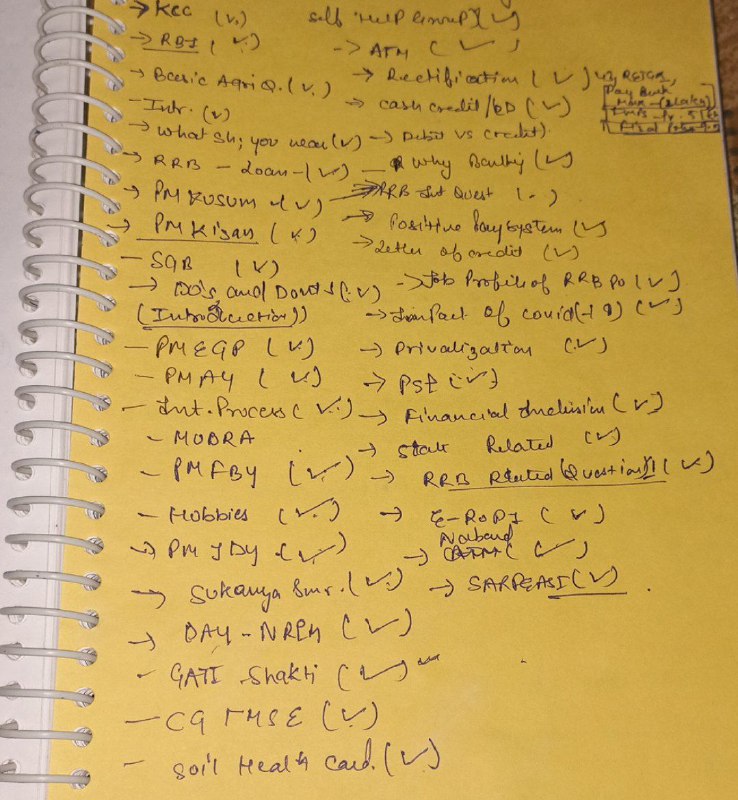 → KCC (✓) Self Help Group (✓)
→ RBI (✓) → ATM (✓)
→ Basic Agri Q. (✓) → Rectification (✓)
- Intr. (✓) → cash credit/OD (✓)
→ What Sh; you wear (✓) → Debit vs Credit)
→ RRB - Loan - (✓) - Why Banking (✓)
→ PM KUSUM - (✓) → RRB Int Quest
→ PM Kisan (✓) → Positive Pay System (✓)
→ Letter of credit (✓)
- SGB (✓)
→ Do's and Dont's (✓) → Job Profile of RRB PO (✓)
(Introduction)) → Impact of Covid(-19) (✓)
- PMEGP (✓) → Privalization (✓)
- PMAY (✓) → PSL (✓)
- Int. Process (✓) → Financial Inclusion (✓)
- MUDRA → State Related (✓)
- PMFBY (✓) → RRB Related (Question)) (✓)
- Hobbies (✓) → E-RUPI (✓)
→ PMJDY - (✓) → (✓)
→ Sukanya Smr. (✓) → SARFEASI (✓)
→ DAY - NRLM (✓)
- GATI Shakti (✓)
- CGTMSE (✓)
- Soil Health Card. (✓)